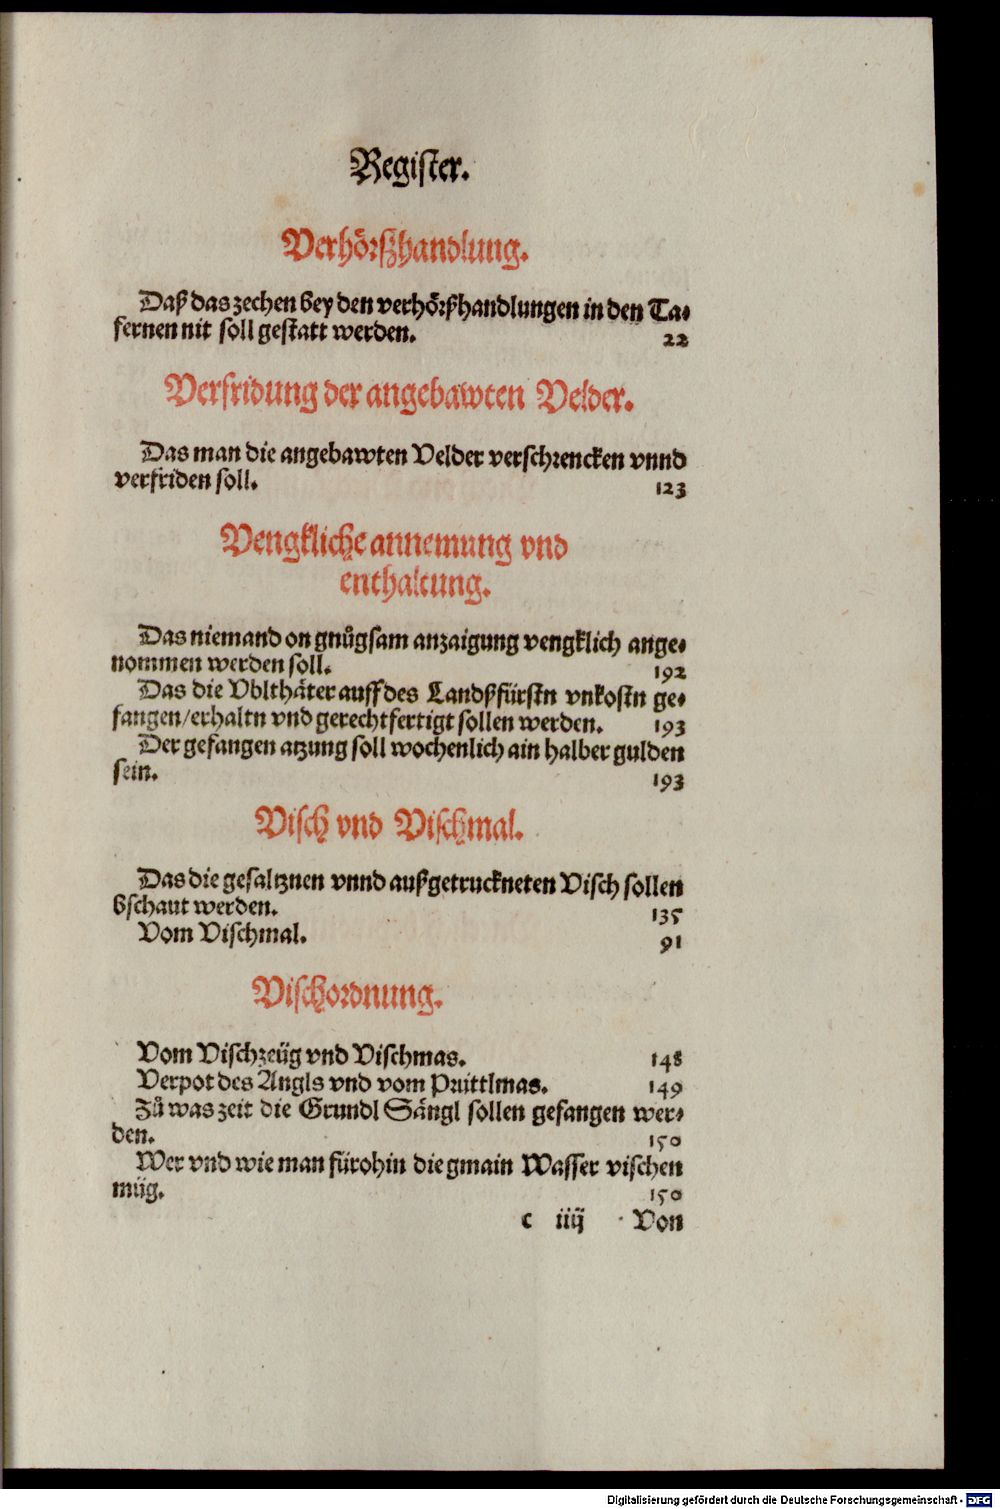 Register.
Verhörßhandlung.
Daß das zechen bey den verhörßhandlungen in den Ta-
fernen nit soll gestatt werden. 22
Verfridung der angebawten Velder.
Das man die angebawten Velder verschrencken vnnd
verfriden soll. 123
Vengkliche annemung vnd
enthaltung.
Das niemand on gnůgsam anzaigung vengklich ange-
nommen werden soll. 192
Das die Vblthäter auff des Landßfürstn vnkostn ge-
fangen/erhaltn vnd gerechtfertigt sollen werden. 193
Der gefangen atzung soll wochenlich ain halber gulden
sein. 193
Visch vnd Vischmal.
Das die gesaltznen vnnd außgetruckneten Visch sollen
bschaut werden. 135
Vom Vischmal. 91
Vischordnung.
Vom Vischzeüg vnd Vischmas. 148
Verpot des Angls vnd vom Prittlmas. 149
Zů was zeit die Grundl Sängl sollen gefangen wer-
den. 150
Wer vnd wie man fürohin die gmain Wasser vischen
müg. 150
c iiij Von
Digitalisierung gefördert durch die Deutsche Forschungsgemeinschaft - DFG